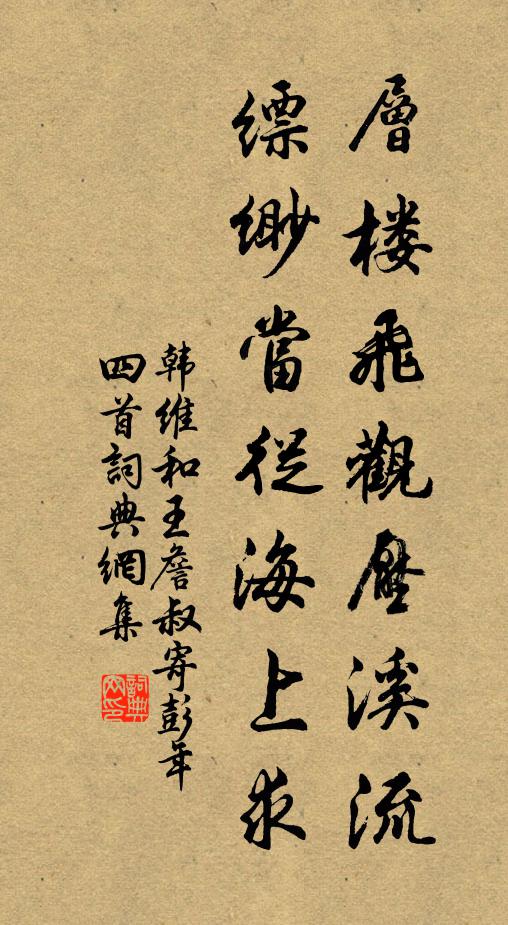 層楼飛觀壓溪流
缥緲當從海上求
韩維和王詹叔寄彭年
四首詞典網集
詞典網印